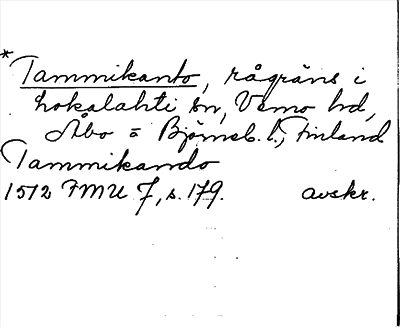 * Tammikanto, rågräns i
Lokalahti sn, Vemo hd,
Åbo = Björneb. l., Finland
Tammikando
1512 FMU 7, s. 179. avskr.